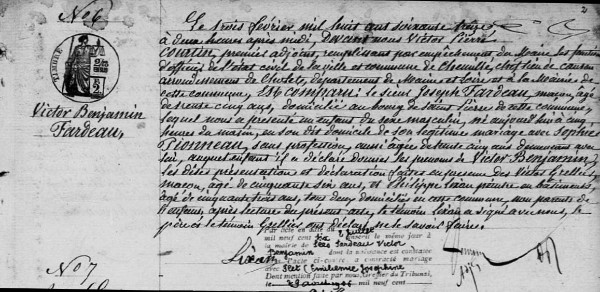 No 6
Victor Benjamin
Fardeau
Le trois février mil huit cent soixante
à deux heures après midi, Devant nous Victor Pierre
premier adjoint, remplissant par empêchement du Maire les fonctions
d'officier de l'état civil de la ville et commune de Chemillé, chef lieu de canton
arrondissement de Cholet, département de Maine et Loire et à la Mairie de
cette commune, Est comparu: le sieur Joseph Fardeau, maçon, âgé
de trente cinq ans, domicilié au bourg de Saint Pierre de cette commune,
lequel nous a présenté un enfant du sexe masculin, né aujourd'hui à cinq
heures du matin, en son dit domicile de son légitime mariage avec Sophie
Pionneau, sans profession, aussi âgée de trente cinq ans demeurant avec
lui, auquel enfant il a déclaré donner les prénoms de Victor Benjamin,
les dites présentation et déclaration faites en présence des Victor Grellier,
maçon, âgé de cinquante six ans, et Philippe Lixan peintre en bâtiments,
âgé de cinquante trois ans, tous deux domiciliés en cette commune, non parents de
l'enfant, après lecture du présent acte, le témoin Lixan a signé avec nous, le
père et le témoin Grellier ont déclaré ne le savoir faire.
Par acte en date du juillet
mil neuf cent six inscrit le même jour à
la mairie de Fardeau Victor
Benjamin dont la naissance est constatée
par l'acte ci-contre a contracté mariage
avec
Dont mention faite par nous Greffier du Tribunal,
le
mil neuf cent
No 7